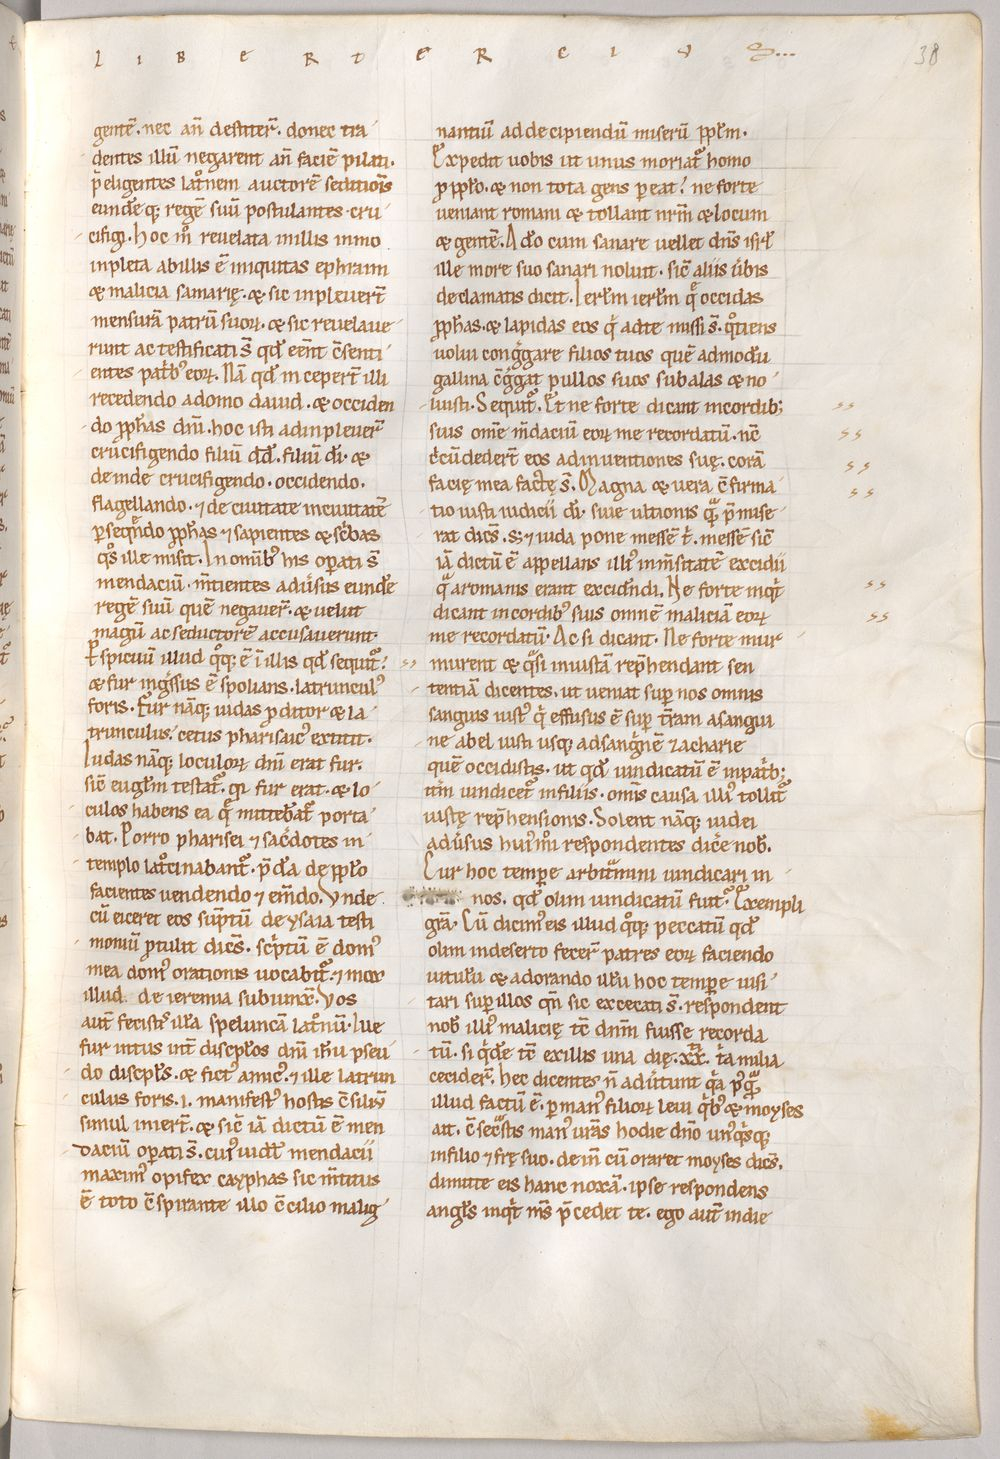 LIBER TERCIUS...
38
gentē. nec añ destiter̄. donec tra
dentes illū negarent an̄ faciē pilati.
p̄eligentes lat̊nem auctorē seditiōis
eundeq; regē suū postulantes cru
cifigi. hoc m̊ revelata in illis immo
inpleta ab illis ē iniquitas ephraim
& malicia samarię. & sic inpleuer̄t
mensurā patrū suoꝝ. & sic revelaue
runt ac testificati s̄ qd̄ eēnt c̄senti
entes pat̄b' eoꝝ. Nā qd̄ inceper̄t illi
recedendo a domo dauid. & occiden
do ꝓphas dn̄i. hoc isti adinpleuer̄
crucifigendo filiū dd̄. filiū dī. &
deinde crucifigendo. occidendo.
flagellando. ⁊ de ciuitate in ciuitatē
ꝑseq̄ndo ꝓphas ⁊ sapientes & sc̄bas
q̊s ille misit. In omīb' his opati s̄
mendaciū. m̄tientes adūsus eunde
regē suū quē negauer̄. & uelut
magū ac seductorē accusauerunt.
ꝑspicuū illud q̊q; ē ī illis qd̄ sequit̄?
& fur ingssus ē spolians. latruncul'
foris. Fur nāq; iudas ꝓditor & la
trunculus; cetus pharisaic' extitit.
Iudas nāq; loculoꝝ dn̄i erat fur.
sic̄ eugl̄m testat̄. qr fur erat. & lo
culos habens ea q̄ mittebāt̄ porta
bat. Porro pharisei ⁊ sac̄dotes in
templo lat̊cinabant̄. p̄da de ꝓplo
facientes uendendo ⁊ em̄do. Vnde
cū eiceret eos sūptū de ysaia testi
moniū ꝓtulit dicēs. sc̄ptū ē dom'
mea dom' orationis uocabit̄. ⁊ mox
illud. de ieremia subiunx̄. Vos
aut̄ fecist' illa speluncā lat̊nū. Iue
fur intus int̄ discipl̄os dn̄i ihū pseu
do discipl̄s. & fict' amic'. ⁊ ille latrun
culus foris. i. manifest' hostis c̄siliū
simul inier̄t. & sic̄ iā dictū ē men
daciū opati s̄. cui' uidl̄ mendacii
maxim' opifex cayphas sic m̄titus
ē toto c̄spirante illo c̄cilio malig
nantiū ad decipiendū miserū ꝓpl̄m.
Expedit uobis ut unus moriat̄ homo
ꝓ ꝓplo. & non tota gens pereat? ne forte
ueniant romani & tollant nr̄m & locum
& gentē. Ad̊o cum sanare uellet dn̄s isrl̄
ille more suo sanari noluit. sic̄ aliis ūbis
declamatis dicit. Ierl̄m ierl̄m q̄ occidas
ꝓphas. & lapidas eos q̇ ad te missi s̄. q̊tiens
uolui cong̊gare filios tuos quē admodū
gallina c̄g̊gat pullos suos sub alas & no
luisti. Sequit̄. Et ne forte dicant in cordib;
suis omē m̄daciū eoꝝ me recordatū. nc̄
c̄cūdeder̄t eos adinuentiones suę. corā
facię mea factę s̄. Magna & uera c̄firma
tio iusti iudicii dī. siue ultionis q̄ p̄mise
rat dicēs. s; ⁊ iuda pone messē t̄. messē sic̄
iā dictū ē appellans illi' inm̄sitatē excidii
q̄ a romanis erant excidendi. Ne forte inqt̄
dicant in cordib' suis omnē maliciā eoꝝ
me recordatū. Ac si dicant. Ne forte mur
murent & q̄si iniustā rep̄hendant sen
tentiā dicentes. ut ueniat suꝑ nos omnis
sanguis iust' q̇ effusus ē suꝑ t̄ram a sangui
ne abel iusti usq; ad sang̊nē zacharie
quē occidistis. ut qd̄ uindicatū ē in pat̄b;
it̄m uindicet̄ in filiis. omīs causa illi' tollit̄
iustę rep̄hensionis. Solent nāq; iudei
adūsus hui'm̊i respondentes dic̄e nob̄.
Cur hoc tempe arbit̄mini uindicari in
nos. qd̄ olim uindicatū fuit? Exempli
grā. Cū dicim' eis illud q̊q; peccatū qd̄
olim in deserto fecer̄ patres eoꝝ faciendo
uitulū & adorando illū hoc tempe uisi
tari suꝑ illos qm̄ sic excecati s̄. respondent
nob̄ illi' malicię tc̄ dn̄m fuisse recorda
tū. si q̇de tc̄ ex illis una die. xx. t̄a milia
cecider̄. hec dicentes n̄ adūtunt q̇a p'q̄
illud factū ē. ꝑ man' filioꝝ leui q̇b' & moyses
ait. c̄sec̄stis man' ur̄as hodie dn̄o un'q̇sq;
in filio ⁊ fr̄e suo. dein̄ cū oraret moyses dicēs.
dimitte eis hanc noxā. ipse respondens
angl̄s inqt̄ m̄s p̄cedet te. ego aut̄ in die